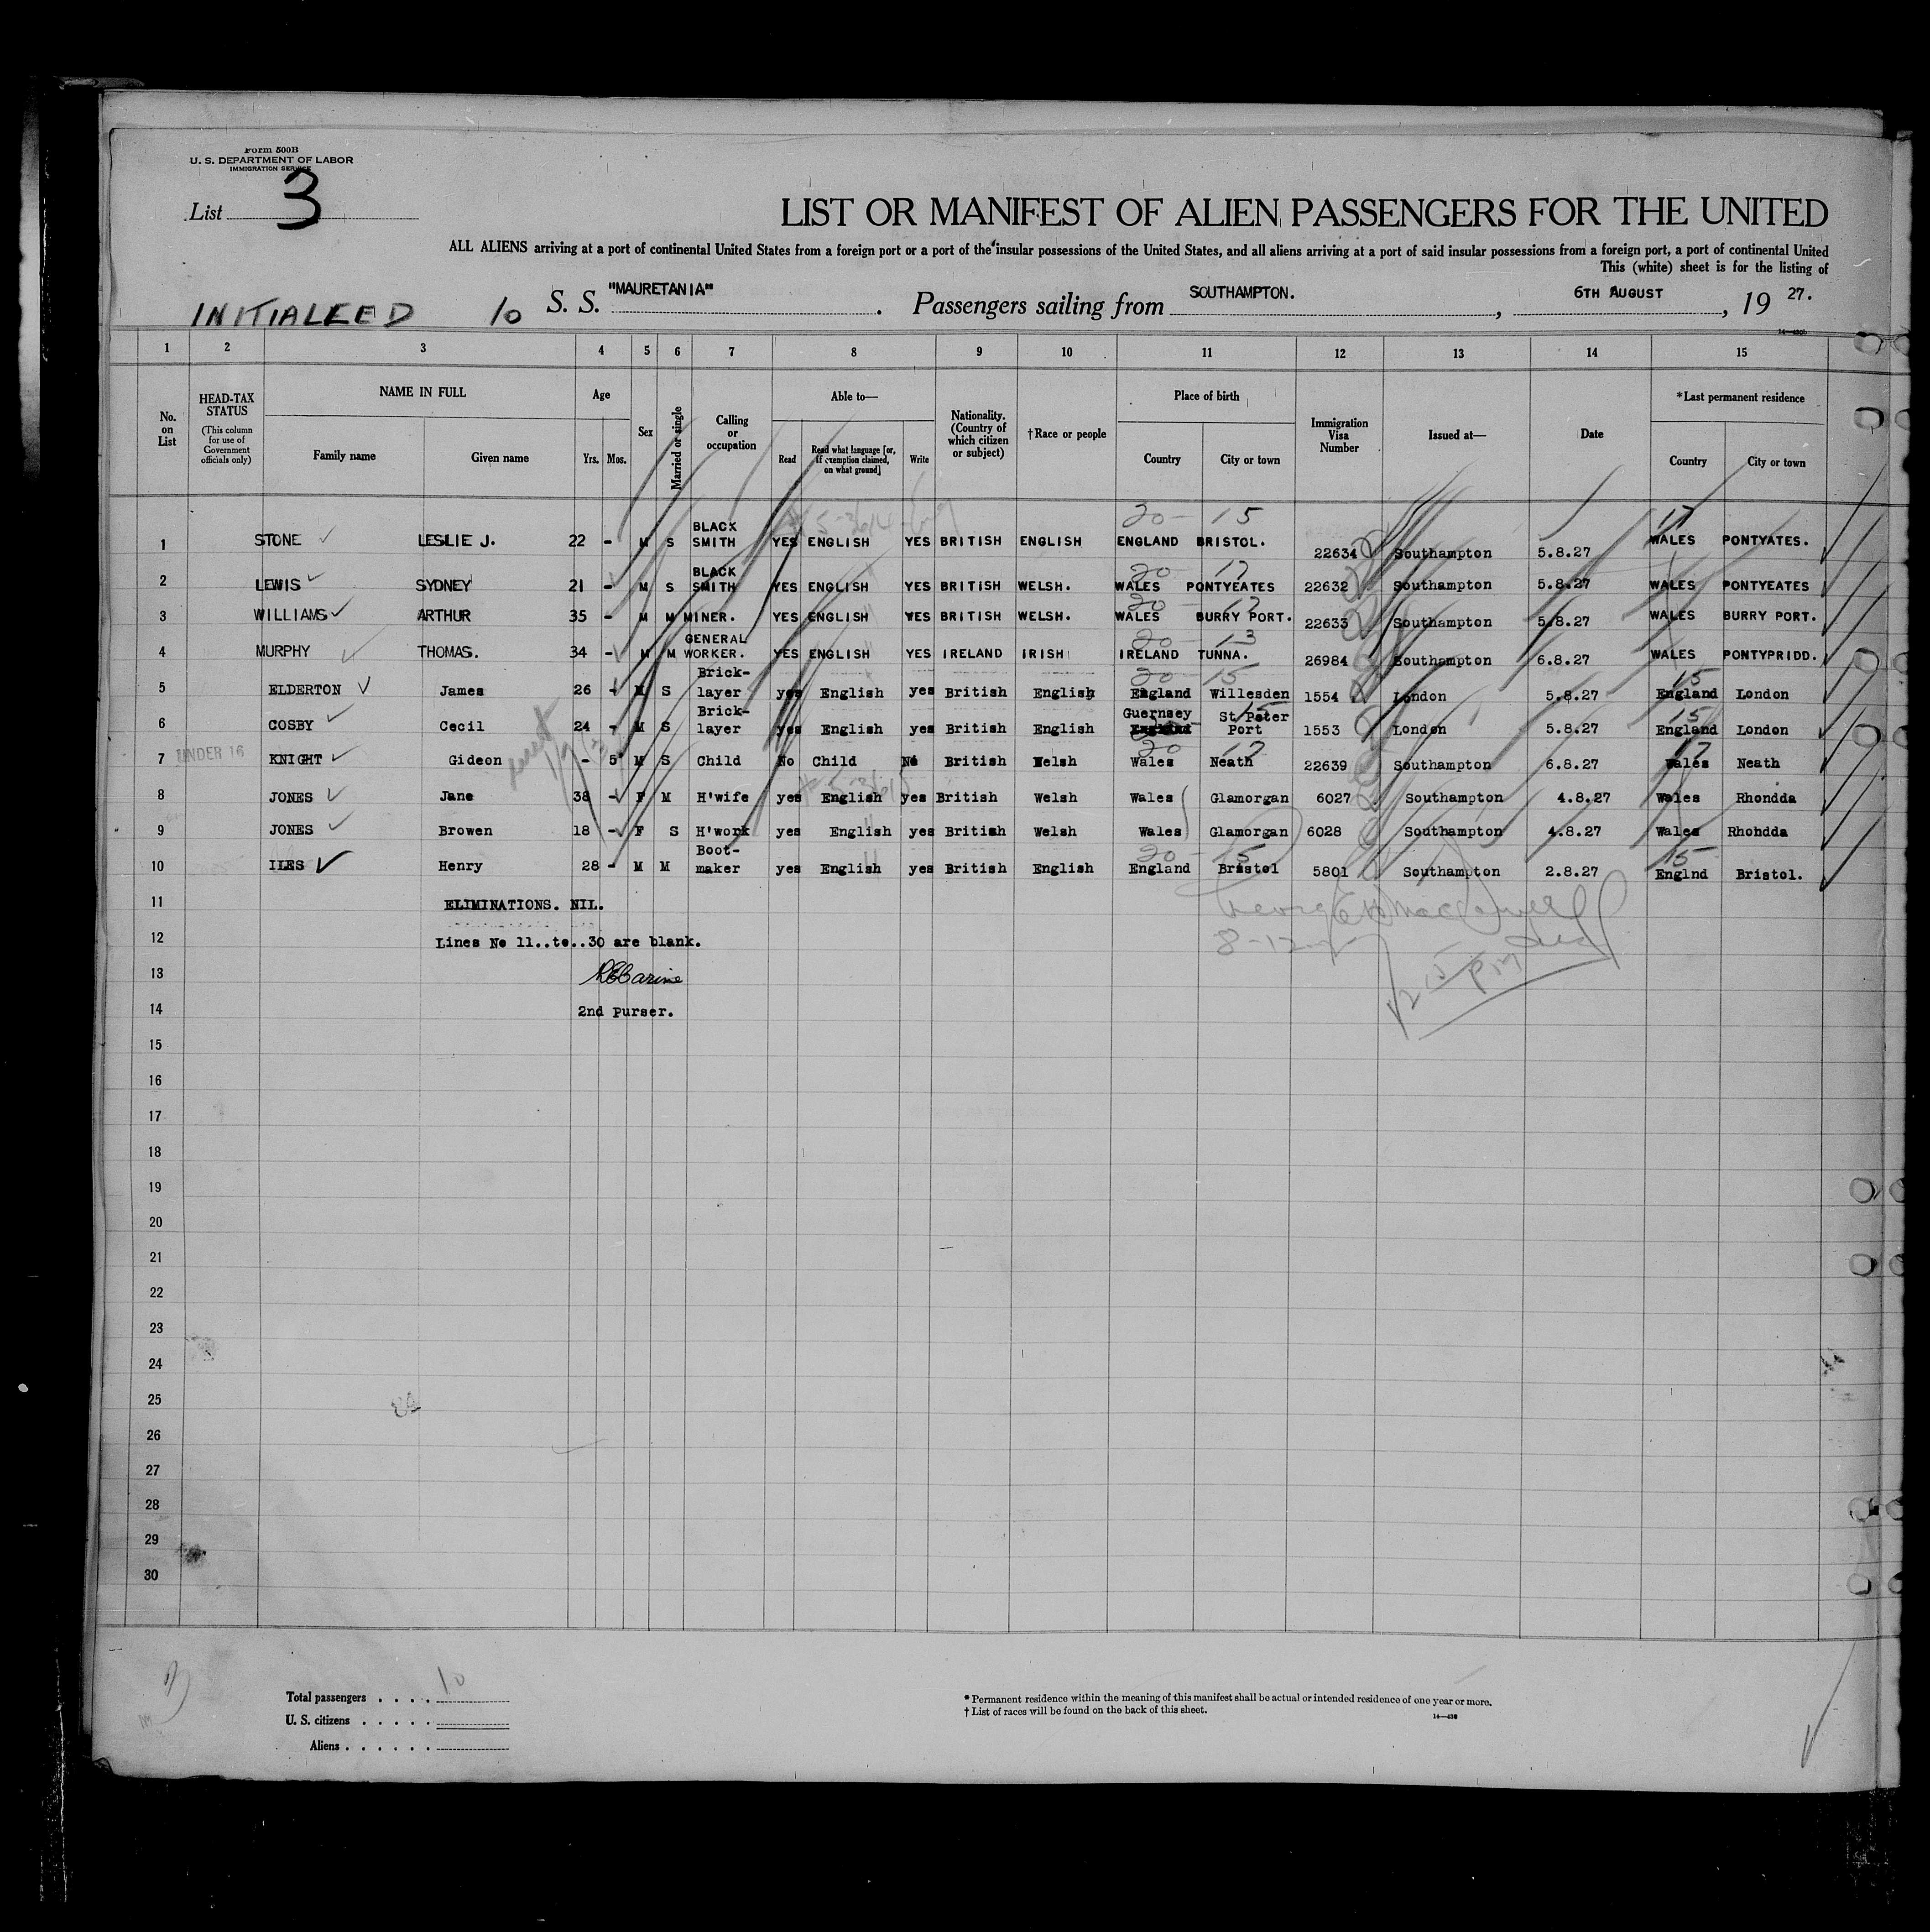 Form 500B
U. S. DEPARTMENT OF LABOR
IMMIGRATION SERVICE
List 3
LIST OR MANIFEST OF ALIEN PASSENGERS FOR THE UNITED
ALL ALIENS arriving at a port of continental United States from a foreign port or a port of the insular possessions of the United States, and all aliens arriving at a port of said insular possessions from a foreign port, a port of continental United
This (white) sheet is for the listing of
INITIALLED 10 S. S. "MAURETANIA" . Passengers sailing from SOUTHAMPTON. , 6TH AUGUST , 19 27.
1 2 3 4 5 6 7 8 9 10 11 12 13 14 15
No. on List
HEAD-TAX STATUS
(This column for use of Government officials only)
NAME IN FULL
Family name Given name
Age
Yrs. Mos.
Sex
Married or single
Calling or occupation
Able to—
Read Read what language [or, if exemption claimed, on what ground] Write
Nationality. (Country of which citizen or subject)
†Race or people
Place of birth
Country City or town
Immigration Visa Number
Issued at—
Date
*Last permanent residence
Country City or town
1 STONE LESLIE J. 22 - M S BLACK SMITH YES ENGLISH YES BRITISH ENGLISH ENGLAND BRISTOL. 22634 Southampton 5.8.27 WALES PONTYATES.
2 LEWIS SYDNEY 21 - M S BLACK SMITH YES ENGLISH YES BRITISH WELSH. WALES PONTYEATES 22632 Southampton 5.8.27 WALES PONTYEATES
3 WILLIAMS ARTHUR 35 - M M MINER. YES ENGLISH YES BRITISH WELSH. WALES BURRY PORT. 22633 Southampton 5.8.27 WALES BURRY PORT.
4 MURPHY THOMAS. 34 - M M GENERAL WORKER. YES ENGLISH YES IRELAND IRISH IRELAND TUNNA. 26984 Southampton 6.8.27 WALES PONTYPRIDD.
5 ELDERTON James 26 - M S Brick-layer yes English yes British English England Willesden 1554 London 5.8.27 England London
6 COSBY Cecil 24 - M S Brick-layer yes English yes British English Guernsey St Peter Port 1553 London 5.8.27 England London
UNDER 16
7 KNIGHT Gideon - 5 M S Child No Child No British Welsh Wales Neath 22639 Southampton 6.8.27 Wales Neath
8 JONES Jane 38 - F M H'wife yes English yes British Welsh Wales Glamorgan 6027 Southampton 4.8.27 Wales Rhondda
9 JONES Browen 18 - F S H'work yes English yes British Welsh Wales Glamorgan 6028 Southampton 4.8.27 Wales Rhondda
10 ILES Henry 28 - M M Boot-maker yes English yes British English England Bristol 5801 Southampton 2.8.27 Englnd Bristol.
11 ELIMINATIONS. NIL.
12 Lines No 11..to..30 are blank.
13
14 2nd Purser.
15
16
17
18
19
20
21
22
23
24
25
26
27
28
29
30
Total passengers . . . . 10
U. S. citizens . . . . .
Aliens . . . . . .
* Permanent residence within the meaning of this manifest shall be actual or intended residence of one year or more.
† List of races will be found on the back of this sheet.